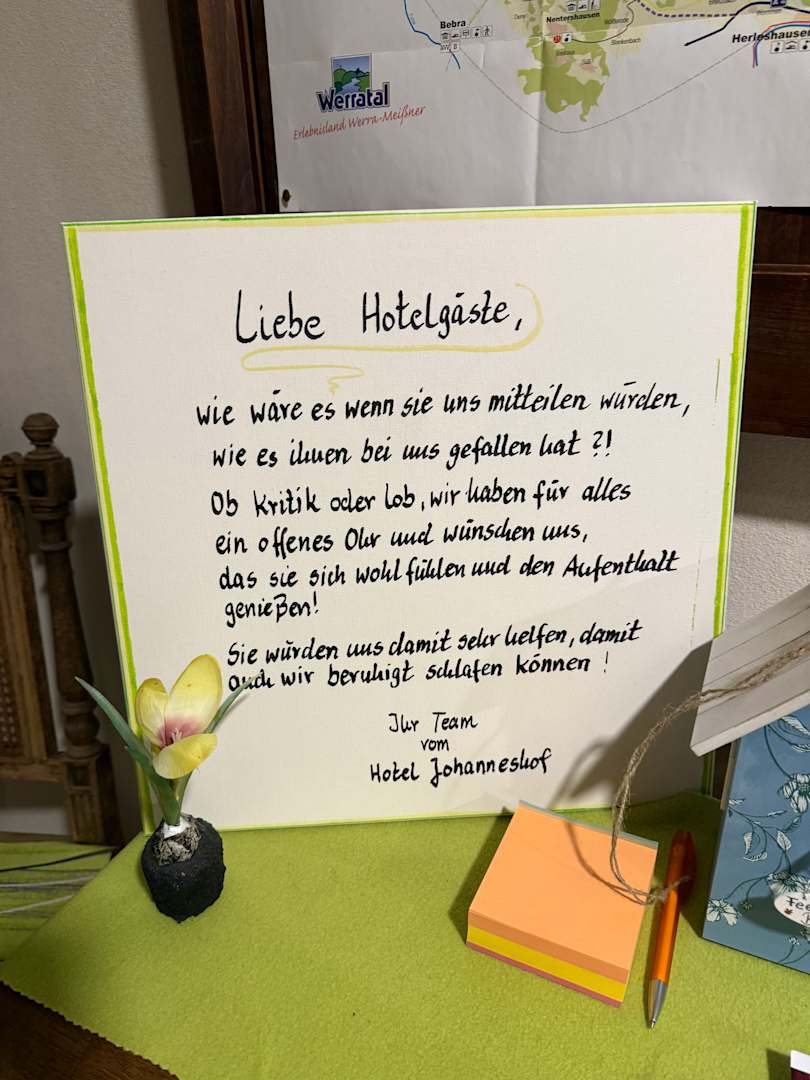 Bebra
Nentershausen
Blankenbach
Herleshausen
Werratal
Erlebnisland Werra-Meißner
Liebe Hotelgäste,
wie wäre es wenn sie uns mitteilen würden,
wie es ihnen bei uns gefallen hat ?!
Ob Kritik oder Lob, wir haben für alles
ein offenes Ohr und wünschen uns,
das sie sich wohl fühlen und den Aufenthalt
genießen!
Sie würden uns damit sehr helfen, damit
auch wir beruhigt schlafen können !
Ihr Team
vom
Hotel Johanneshof